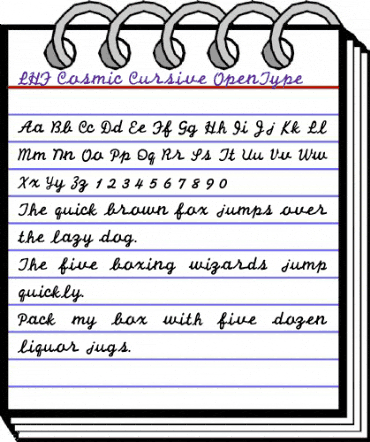 LHF Cosmic Cursive OpenType
Aa Bb Cc Dd Ee Ff Gg Hh Ii Jj Kk Ll
Mm Nn Oo Pp Qq Rr Ss Tt Uu Vv Ww
Xx Yy Zz 1 2 3 4 5 6 7 8 9 0
The quick brown fox jumps over
the lazy dog.
The five boxing wizards jump
quickly.
Pack my box with five dozen
liquor jugs.